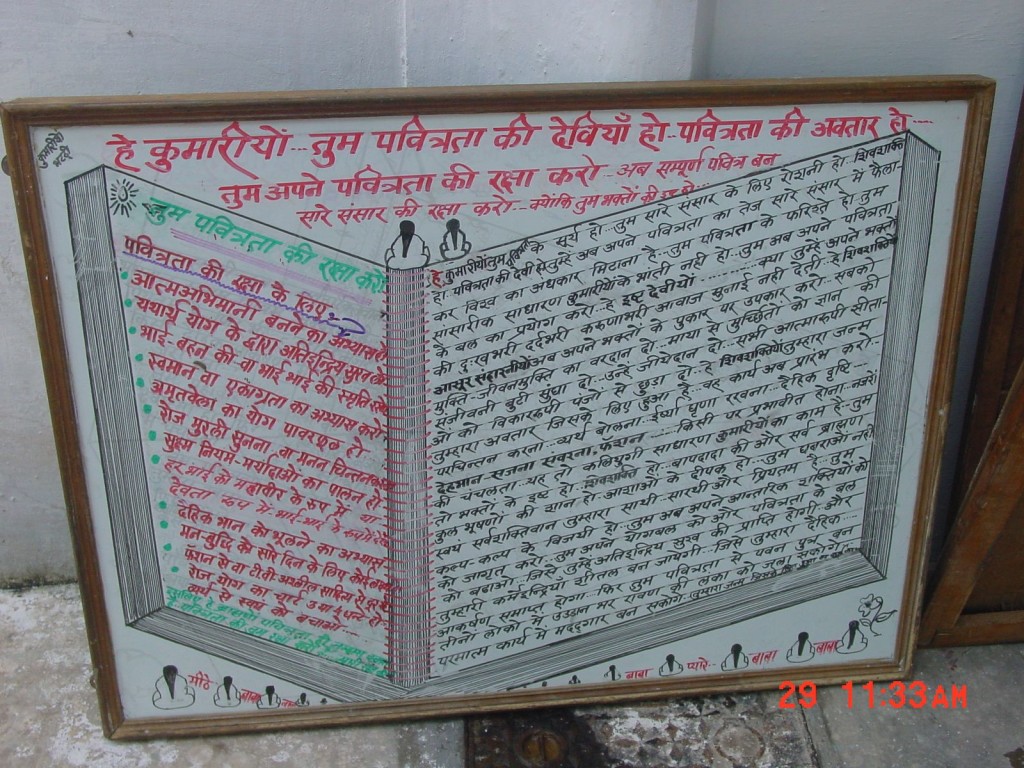 हे कुमारीयों...तुम पवित्रता की देवियाँ हो-पवित्रता की अवतार हो....
तुम अपने पवित्रता की रक्षा करो...अब सम्पूर्ण पवित्र बन
सारे संसार की रक्षा करो...क्योंकि तुम भक्तों की
कुमारीयों
तुम पवित्रता की रक्षा करो
पवित्रता की रक्षा के लिए
आत्मअभिमानी बनने का अभ्यास हो
यथार्थ योग के द्वारा अतिइन्द्रिय सुख ले
भाई-बहन की वा भाई भाई की स्मृति
स्वमान वा एकाग्रता का अभ्यास करो
अमृतवेला का योग पावरफुल हो
रोज मुरली सुनना वा मनन चिन्तन
सुक्ष्म नियम-मर्यादाओं का पालन हो
हर भाई को महावीर के रूप में वा
देवता रूप में भाई-भाई के
दैहिक भान को भूलने का अभ्यास
मन-बुद्धि को सारे दिन के लिए
फैशन से वा टीवी अश्लील साहित्य से दूर
रोज योग का चार्ट 3 वा 4 घन्टे हो
व्यर्थ से स्वयं को बचाओ...
हे कुमारीयों तुम के सूर्य हो...तुम सारे संसार के लिए रोशनी हो...शिवशक्ति
हो पवित्रता की देवी हो तुम्हे अब अपने पवित्रता का तेज सारे संसार में फैला-
कर विश्व का अंधकार मिटाना है...तुम पवित्रता के फरिश्ते हो तुम
सांसारीक साधारण कुमारीयों के भांती नही हो...तुम अब अपने पवित्रता
के बल का प्रयोग करो...हे इष्ट देवीयों .......... क्या तुम्हे अपने भक्तो
की दुःखभरी दर्दभरी करुणाभरी आवाज सुनाई नही देती हे शिवशक्तियों
आसूर संहारनीयों अब अपने भक्तों के पुकार पर उपकार करो...सबको
मुक्ति-जीवनमुक्ति का वरदान दो...माया से मुर्च्छितो को ज्ञान की
संजीवनी बुटी सुंघा दो...उन्हे जीयदान दो...सभी आत्मारूपी सीता-
ओं को विकाररूपी पंजो से छुडा दो...हे शिवशक्तियों तुम्हारा जन्म
तुम्हारा अवतार जिसके लिए हुआ है...वह कार्य अब प्रारंभ करो...
परचिन्तन करना...व्यर्थ बोलना...ईर्ष्या घृणा रखना...दैहिक दृष्टि-
देहभान सजना संवरना, फॅशन......किसी पर प्रभावीत होना...नजरों
की चंचलता...यह तो कलियुगी साधारण कुमारीयों का काम है...तुम
तो भक्तो के इष्ट हो...शिवशक्ति हो...बापदादा की और सर्व ब्राह्मण
कुल भूषणों की शान हो...आशाओं के दीपक हो...तुम घबराओं नही
स्वयं सर्वशक्तिवान तुम्हारा साथी...सारथी और प्रियतम है...तुम
कल्प-कल्प के विजयी हो...तुम अब अपने आन्तरिक शक्तियों को
को जागृत करो...तुम अपने योगबल को और पवित्रता के बल
को बढाओ...जिसे तुम्हे अतिइन्द्रिय सुख की प्राप्ति होगी और
तुम्हारी कर्मेइन्द्रियां शीतल बन जाएगी...जिसे तुम्हारा दैहिक...
आकर्षण समाप्त होगा...फिर तुम पवित्रता से पवन पुत्र बन
तीनो लोकों में उडान भर रावण की लंका को जला सकोगे...
परमात्म कार्य में मददगार बन सकोगे...तुम्हारा जन्म
मीठे
बाबा
बाबा
प्यारे..
बाबा
बाबा
29 11:33AM